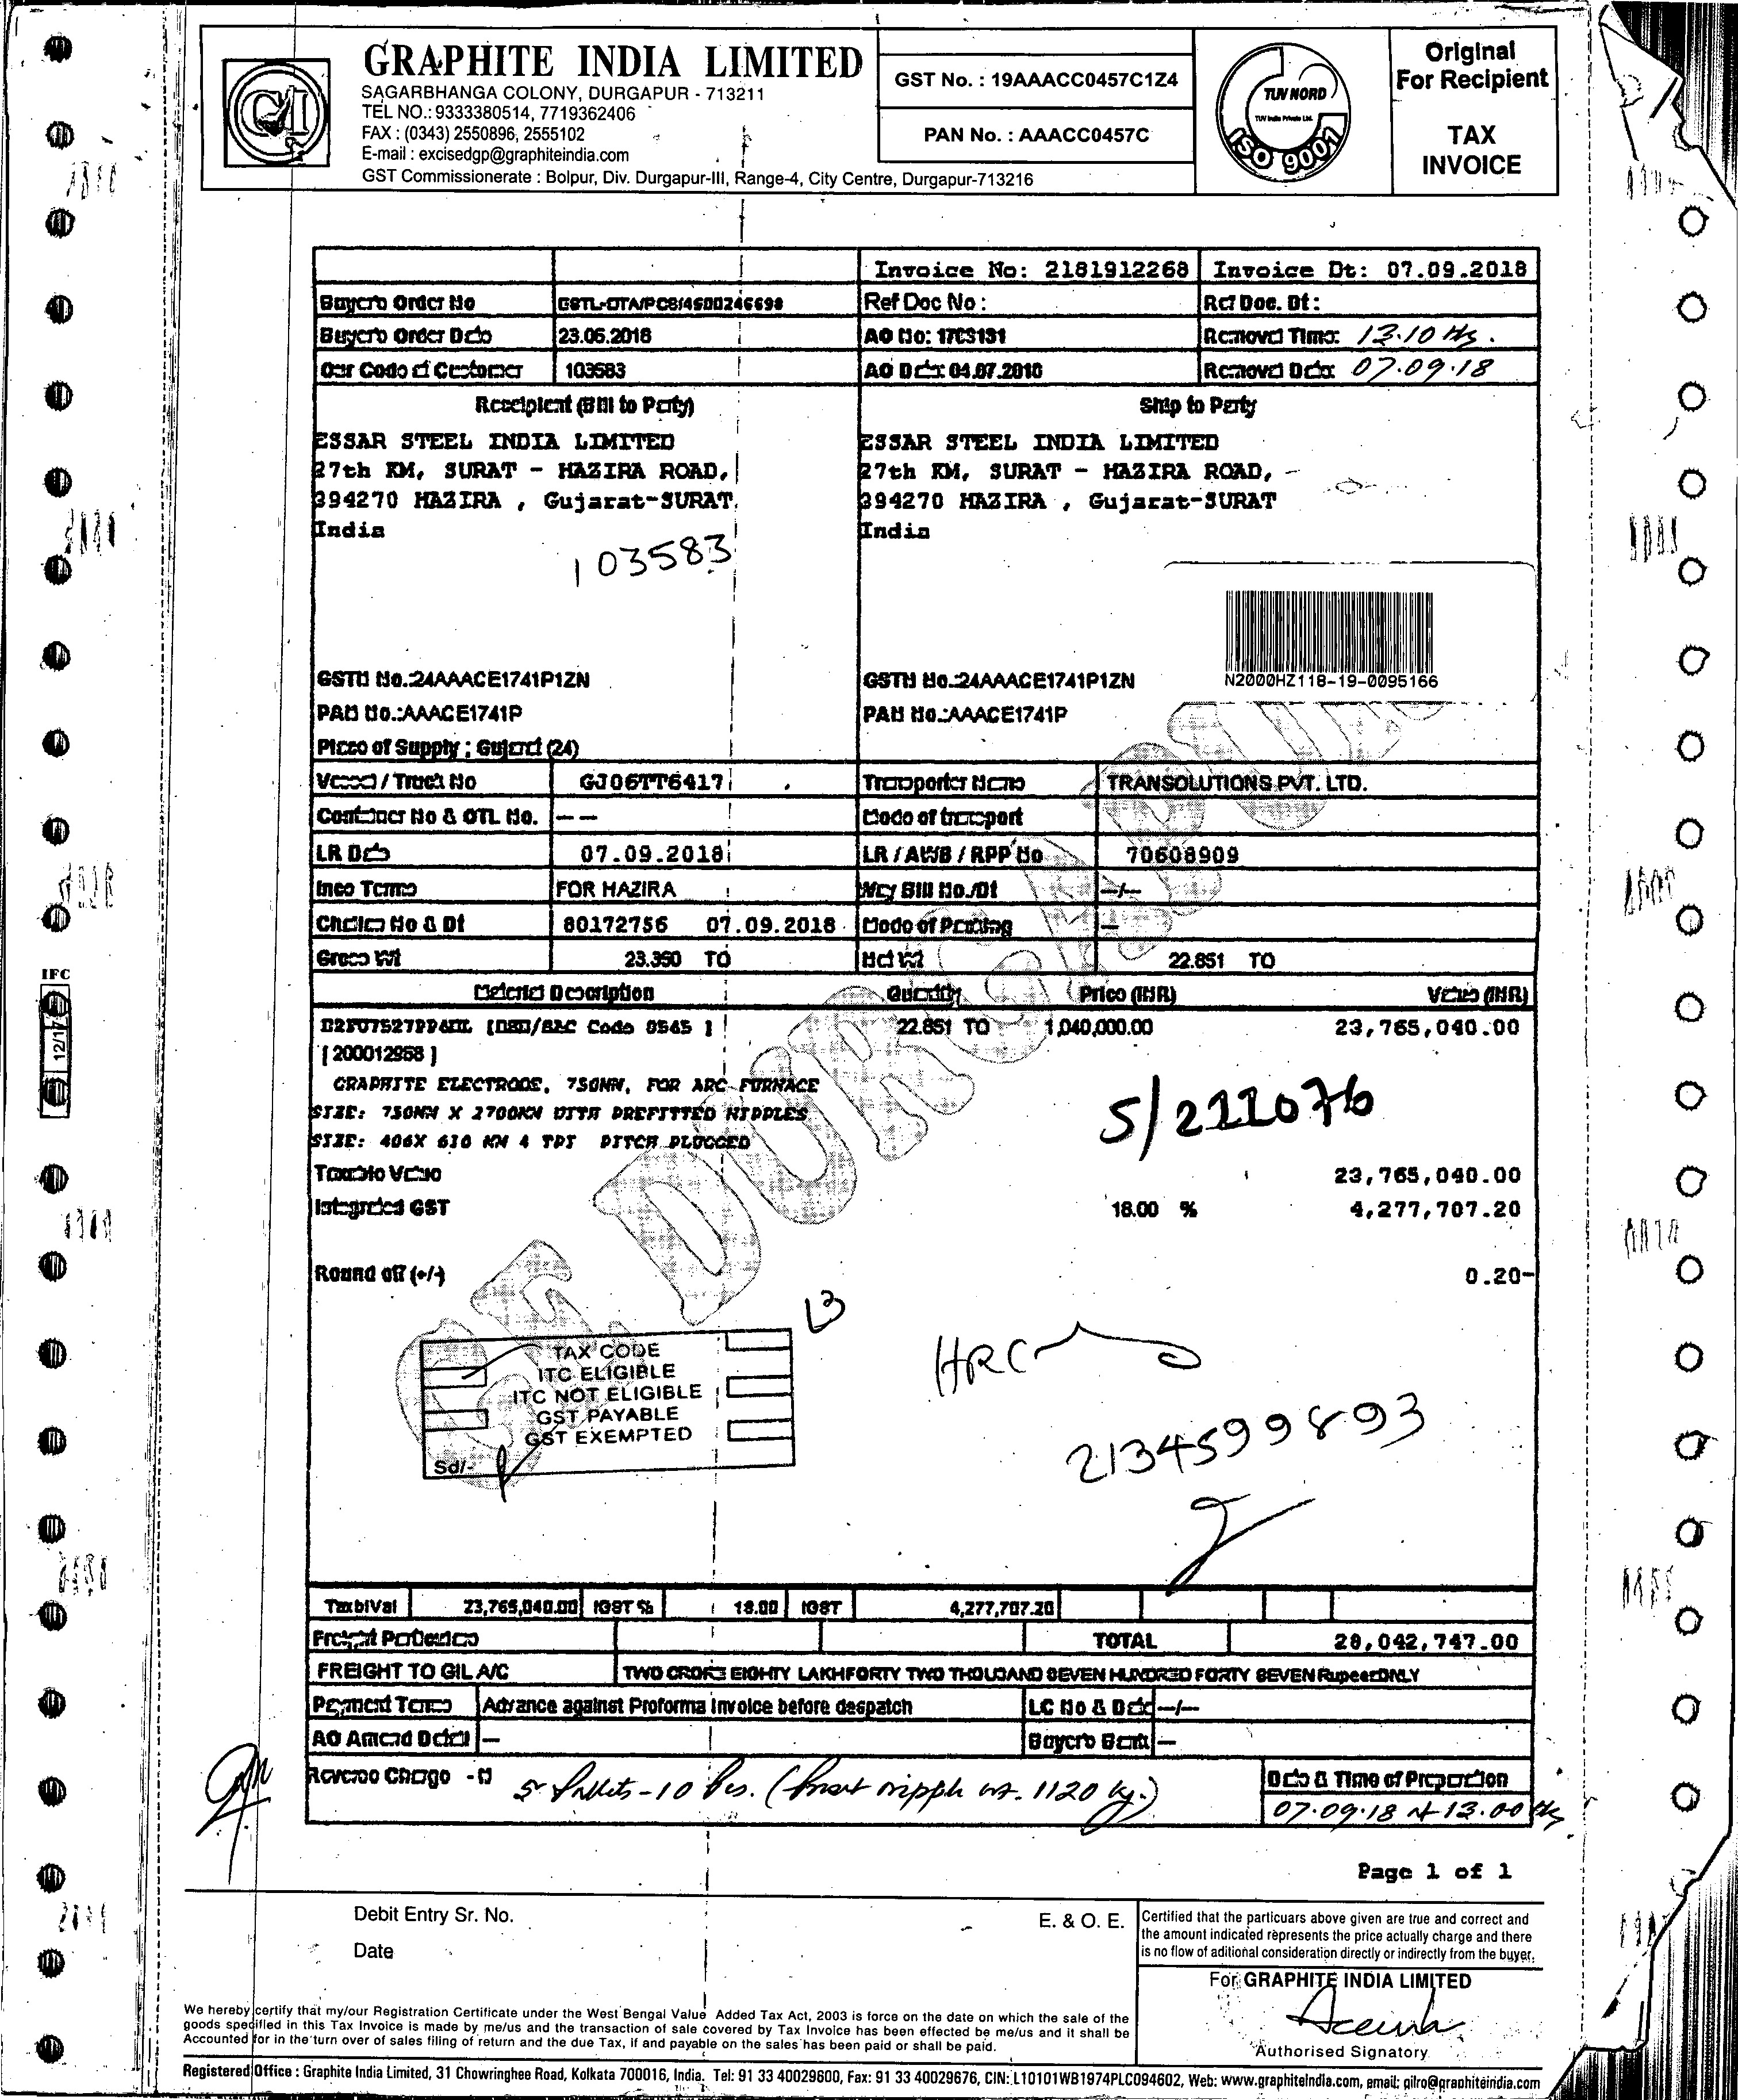 GRAPHITE INDIA LIMITED
SAGARBHANGA COLONY, DURGAPUR - 713211
TEL NO.: 9333380514, 7719362406
FAX : (0343) 2550896, 2555102
E-mail : excisedgp@graphiteindia.com
GST Commissionerate : Bolpur, Div. Durgapur-III, Range-4, City Centre, Durgapur-713216
GST No. : 19AAACC0457C1Z4
PAN No. : AAACC0457C
TUV NORD
TUV India Private Ltd.
ISO 9001
Original
For Recipient
TAX
INVOICE
Invoice No: 2181912268 Invoice Dt: 07.09.2018
Buyer's Order No Ref Doc No : Ref Doc. Dt :
Buyer's Order Date 23.06.2018 AO No: 17CS131 Removal Time: 13.10 Hrs.
Our Code of Customer 103583 AO Date: 04.07.2018 Removal Date: 07.09.18
Receipient (Bill to Party) Ship to Party
ESSAR STEEL INDIA LIMITED ESSAR STEEL INDIA LIMITED
27th KM, SURAT - HAZIRA ROAD, 27th KM, SURAT - HAZIRA ROAD,
394270 HAZIRA , Gujarat-SURAT 394270 HAZIRA , Gujarat-SURAT
India India
103583
N2000HZ118-19-0095166
GSTN No.:24AAACE1741P1ZN GSTN No.:24AAACE1741P1ZN
PAN No.:AAACE1741P PAN No.:AAACE1741P
Place of Supply : Gujarat (24)
Vessel / Truck No GJ06TT6417 Transporter Name TRANSOLUTIONS PVT. LTD.
Container No & OTL No. -- Mode of transport
LR Date 07.09.2018 LR / AWB / RPP No 70608909
Inco Terms FOR HAZIRA Way Bill No./Dt --/--
Challan No & Dt 80172756 07.09.2018 Mode of Packing --
Gross Wt 23.350 TO Net Wt 22.851 TO
Material Description Quantity Price (INR) Value (INR)
22.851 TO 1,040,000.00 23,765,040.00
[ 200012958 ]
GRAPHITE ELECTRODE, 750MM, FOR ARC FURNACE
SIZE: 750MM X 2700MM WITH PREFITTED NIPPLES
SIZE: 406X 610 MM 4 TPI PITCH PLUGGED
S/211076
Taxable Value 23,765,040.00
Integrated GST 18.00 % 4,277,707.20
Round off (+/-) 0.20-
L3
TAX CODE
ITC ELIGIBLE
ITC NOT ELIGIBLE
GST PAYABLE
GST EXEMPTED
Sd/-
HRC
2134599893
GIL DURGAPUR
TaxblVal 23,765,040.00 IGST % 18.00 IGST 4,277,707.20
Freight Particulars TOTAL 28,042,747.00
FREIGHT TO GIL A/C TWO CRORE EIGHTY LAKHFORTY TWO THOUSAND SEVEN HUNDRED FORTY SEVEN RupeesONLY
Payment Terms Advance against Proforma Invoice before despatch LC No & Date --/--
AO Amend Detail -- Buyer's Bank --
Reverse Charge - N 5 Pallets - 10 Pcs. ( nipple wt. 1120 kg.) Date & Time of Preparation
07.09.18 at 13.00 Hrs
Page 1 of 1
IFC
12/17
Debit Entry Sr. No.
Date
E. & O. E.
Certified that the particuars above given are true and correct and
the amount indicated represents the price actually charge and there
is no flow of aditional consideration directly or indirectly from the buyer.
For GRAPHITE INDIA LIMITED
Authorised Signatory
We hereby certify that my/our Registration Certificate under the West Bengal Value Added Tax Act, 2003 is force on the date on which the sale of the
goods specified in this Tax Invoice is made by me/us and the transaction of sale covered by Tax Invoice has been effected be me/us and it shall be
Accounted for in the turn over of sales filing of return and the due Tax, if and payable on the sales has been paid or shall be paid.
Registered Office : Graphite India Limited, 31 Chowringhee Road, Kolkata 700016, India. Tel: 91 33 40029600, Fax: 91 33 40029676, CIN: L10101WB1974PLC094602, Web: www.graphiteindia.com, email: gilro@graphiteindia.com